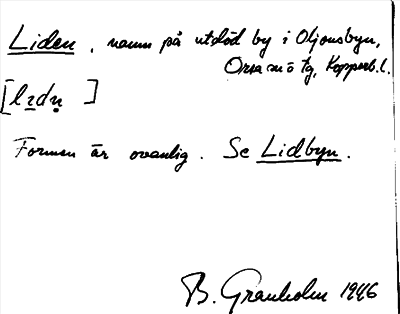 Liden, namn på utdöd by i Oljonsbyn,
Orsa sn o tg, Kopparb.l.
[lɪdṇ]
Formen är ovanlig. Se Lidbyn.
B. Granholm 1946